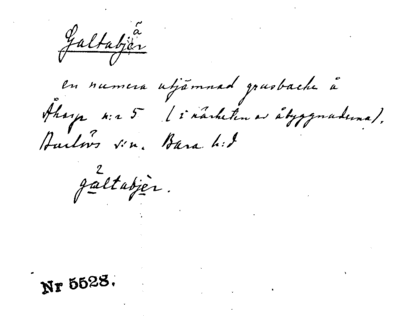 Galtabjer
en numera utjämnad grusbacke å
Åkarp n:r 5 (i närheten av åbyggnaderna),
Burlövs s:n. Bara h:d
galtabjer.
Nr 5528.